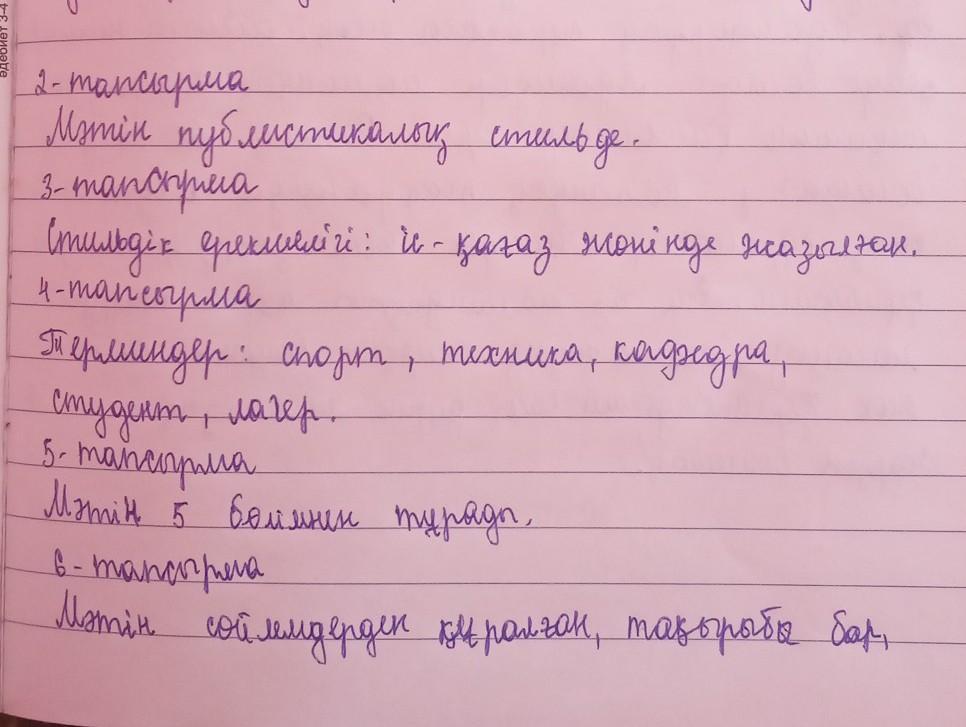 әдебиет 3-4
2-тапсырма
Мәтін публистикалық стильде.
3-тапсырма
Стильдік ерекшелігі: іс-қағаз жөнінде жазылған.
4-тапсырма
Терминдер: спорт, техника, кафедра,
студент, лагер.
5-тапсырма
Мәтің 5 бөлімнен тұрады.
6-тапсырма
Мәтін сөйлемдерден құралған, тақырыбы бар,